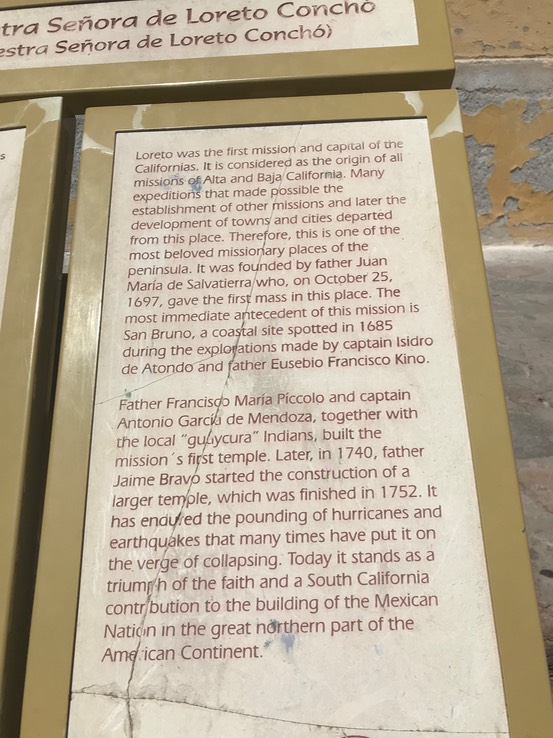 tra Señora de Loreto Conchó
estra Señora de Loreto Conchó)
s
Loreto was the first mission and capital of the
Californias. It is considered as the origin of all
missions of Alta and Baja California. Many
expeditions that made possible the
establishment of other missions and later the
development of towns and cities departed
from this place. Therefore, this is one of the
most beloved missionary places of the
peninsula. It was founded by father Juan
María de Salvatierra who, on October 25,
1697, gave the first mass in this place. The
most immediate antecedent of this mission is
San Bruno, a coastal site spotted in 1685
during the explorations made by captain Isidro
de Atondo and father Eusebio Francisco Kino.
Father Francisco María Píccolo and captain
Antonio García de Mendoza, together with
the local "guaycura" Indians, built the
mission´s first temple. Later, in 1740, father
Jaime Bravo started the construction of a
larger temple, which was finished in 1752. It
has endured the pounding of hurricanes and
earthquakes that many times have put it on
the verge of collapsing. Today it stands as a
triumph of the faith and a South California
contribution to the building of the Mexican
Nation in the great northern part of the
American Continent.